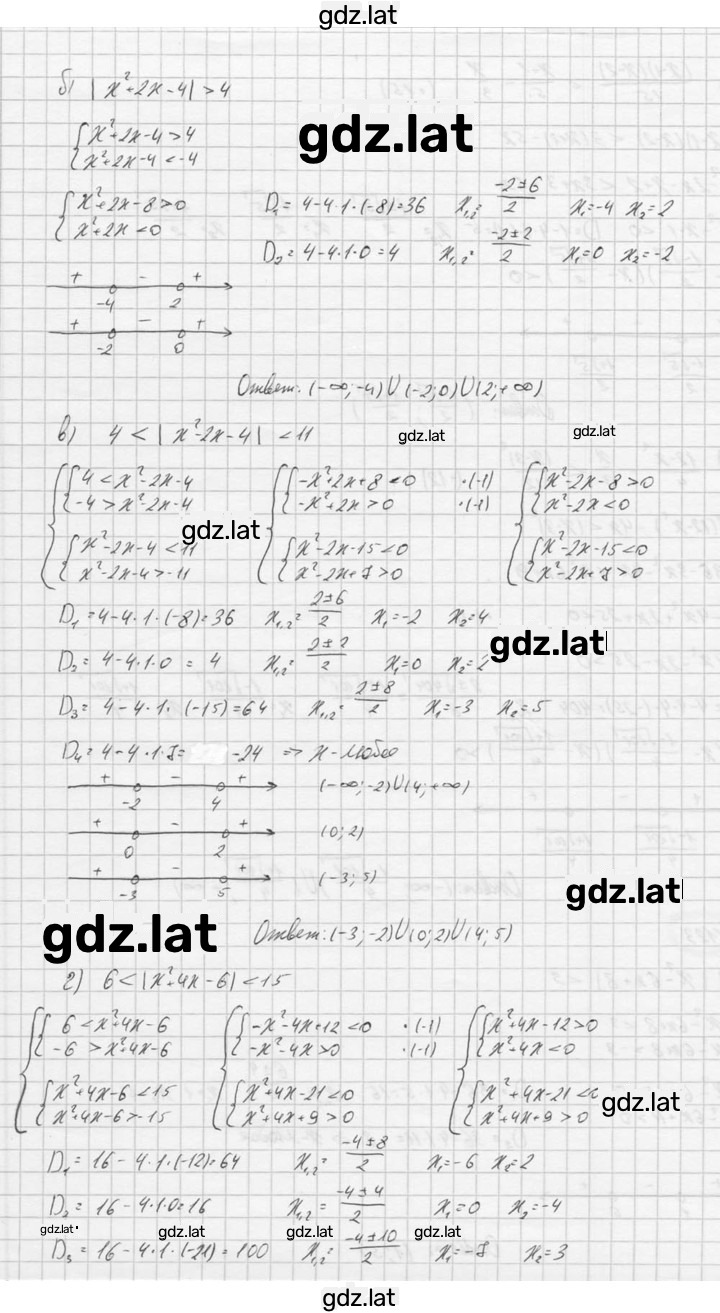 gdz.lat
б) |x²+2x-4|>4
gdz.lat
{x²+2x-4>4
{x²+2x-4<-4
{x²+2x-8>0 D₁= 4-4·1·(-8)=36 x₁,₂= (-2±6)/2 x₁=-4 x₂=2
{x²+2x<0 D₂= 4-4·1·0=4 x₁,₂= (-2±2)/2 x₁=0 x₂=-2
+ - +
-4 2
+ - +
-2 0
Ответ: (-∞;-4)∪(-2;0)∪(2;+∞)
в) 4<|x²-2x-4|<11 gdz.lat gdz.lat
{4<x²-2x-4 {-x²+2x+8<0 ·(-1) {x²-2x-8>0
{-4>x²-2x-4 {-x²+2x>0 ·(-1) {x²-2x<0
gdz.lat
{x²-2x-4<11 {x²-2x-15<0 {x²-2x-15<0
{x²-2x-4>-11 {x²-2x+7>0 {x²-2x+7>0
D₁=4-4·1·(-8)=36 x₁,₂= (2±6)/2 x₁=-2 x₂=4
gdz.lat
D₂= 4-4·1·0 = 4 x₁,₂= (2±2)/2 x₁=0 x₂=2
D₃= 4-4·1·(-15)=64 x₁,₂= (2±8)/2 x₁=-3 x₂=5
D₄=4-4·1·7= -24 => x-любое
+ - + (-∞;-2)∪(4;+∞)
-2 4
+ - + (0;2)
0 2
+ - + (-3;5)
-3 5
gdz.lat
gdz.lat Ответ:(-3;-2)∪(0;2)∪(4;5)
г) 6<|x²+4x-6|<15
{6<x²+4x-6 {-x²-4x+12<0 ·(-1) {x²+4x-12>0
{-6>x²+4x-6 {-x²-4x>0 ·(-1) {x²+4x<0
{x²+4x-6<15 {x²+4x-21<0 {x²+4x-21<0
gdz.lat
{x²+4x-6>-15 {x²+4x+9>0 {x²+4x+9>0
D₁= 16-4·1·(-12)=64 x₁,₂= (-4±8)/2 x₁=-6 x₂=2
D₂= 16-4·1·0=16 x₁,₂= (-4±4)/2 x₁=0 x₂=-4
gdz.lat gdz.lat gdz.lat gdz.lat
D₃= 16-4·1·(-21)=100 x₁,₂= (-4±10)/2 x₁=-7 x₂=3
gdz.lat